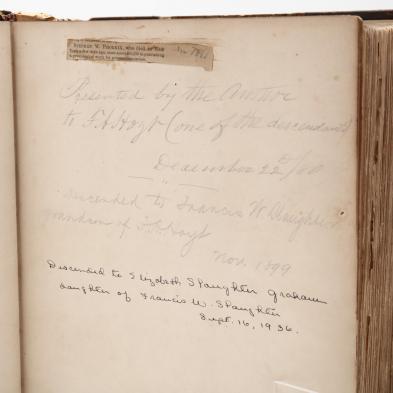 STEPHEN W. PHOENIX, who died in New
Presented by the Author
to F.A. Hoyt (one of the descendants)
December 22d/80
Descended to Francis W. Slaughter
grandson of F.A. Hoyt
Nov. 1899
Descended to Elizabeth Slaughter Graham
daughter of Francis W. Slaughter
Sept. 16, 1936.